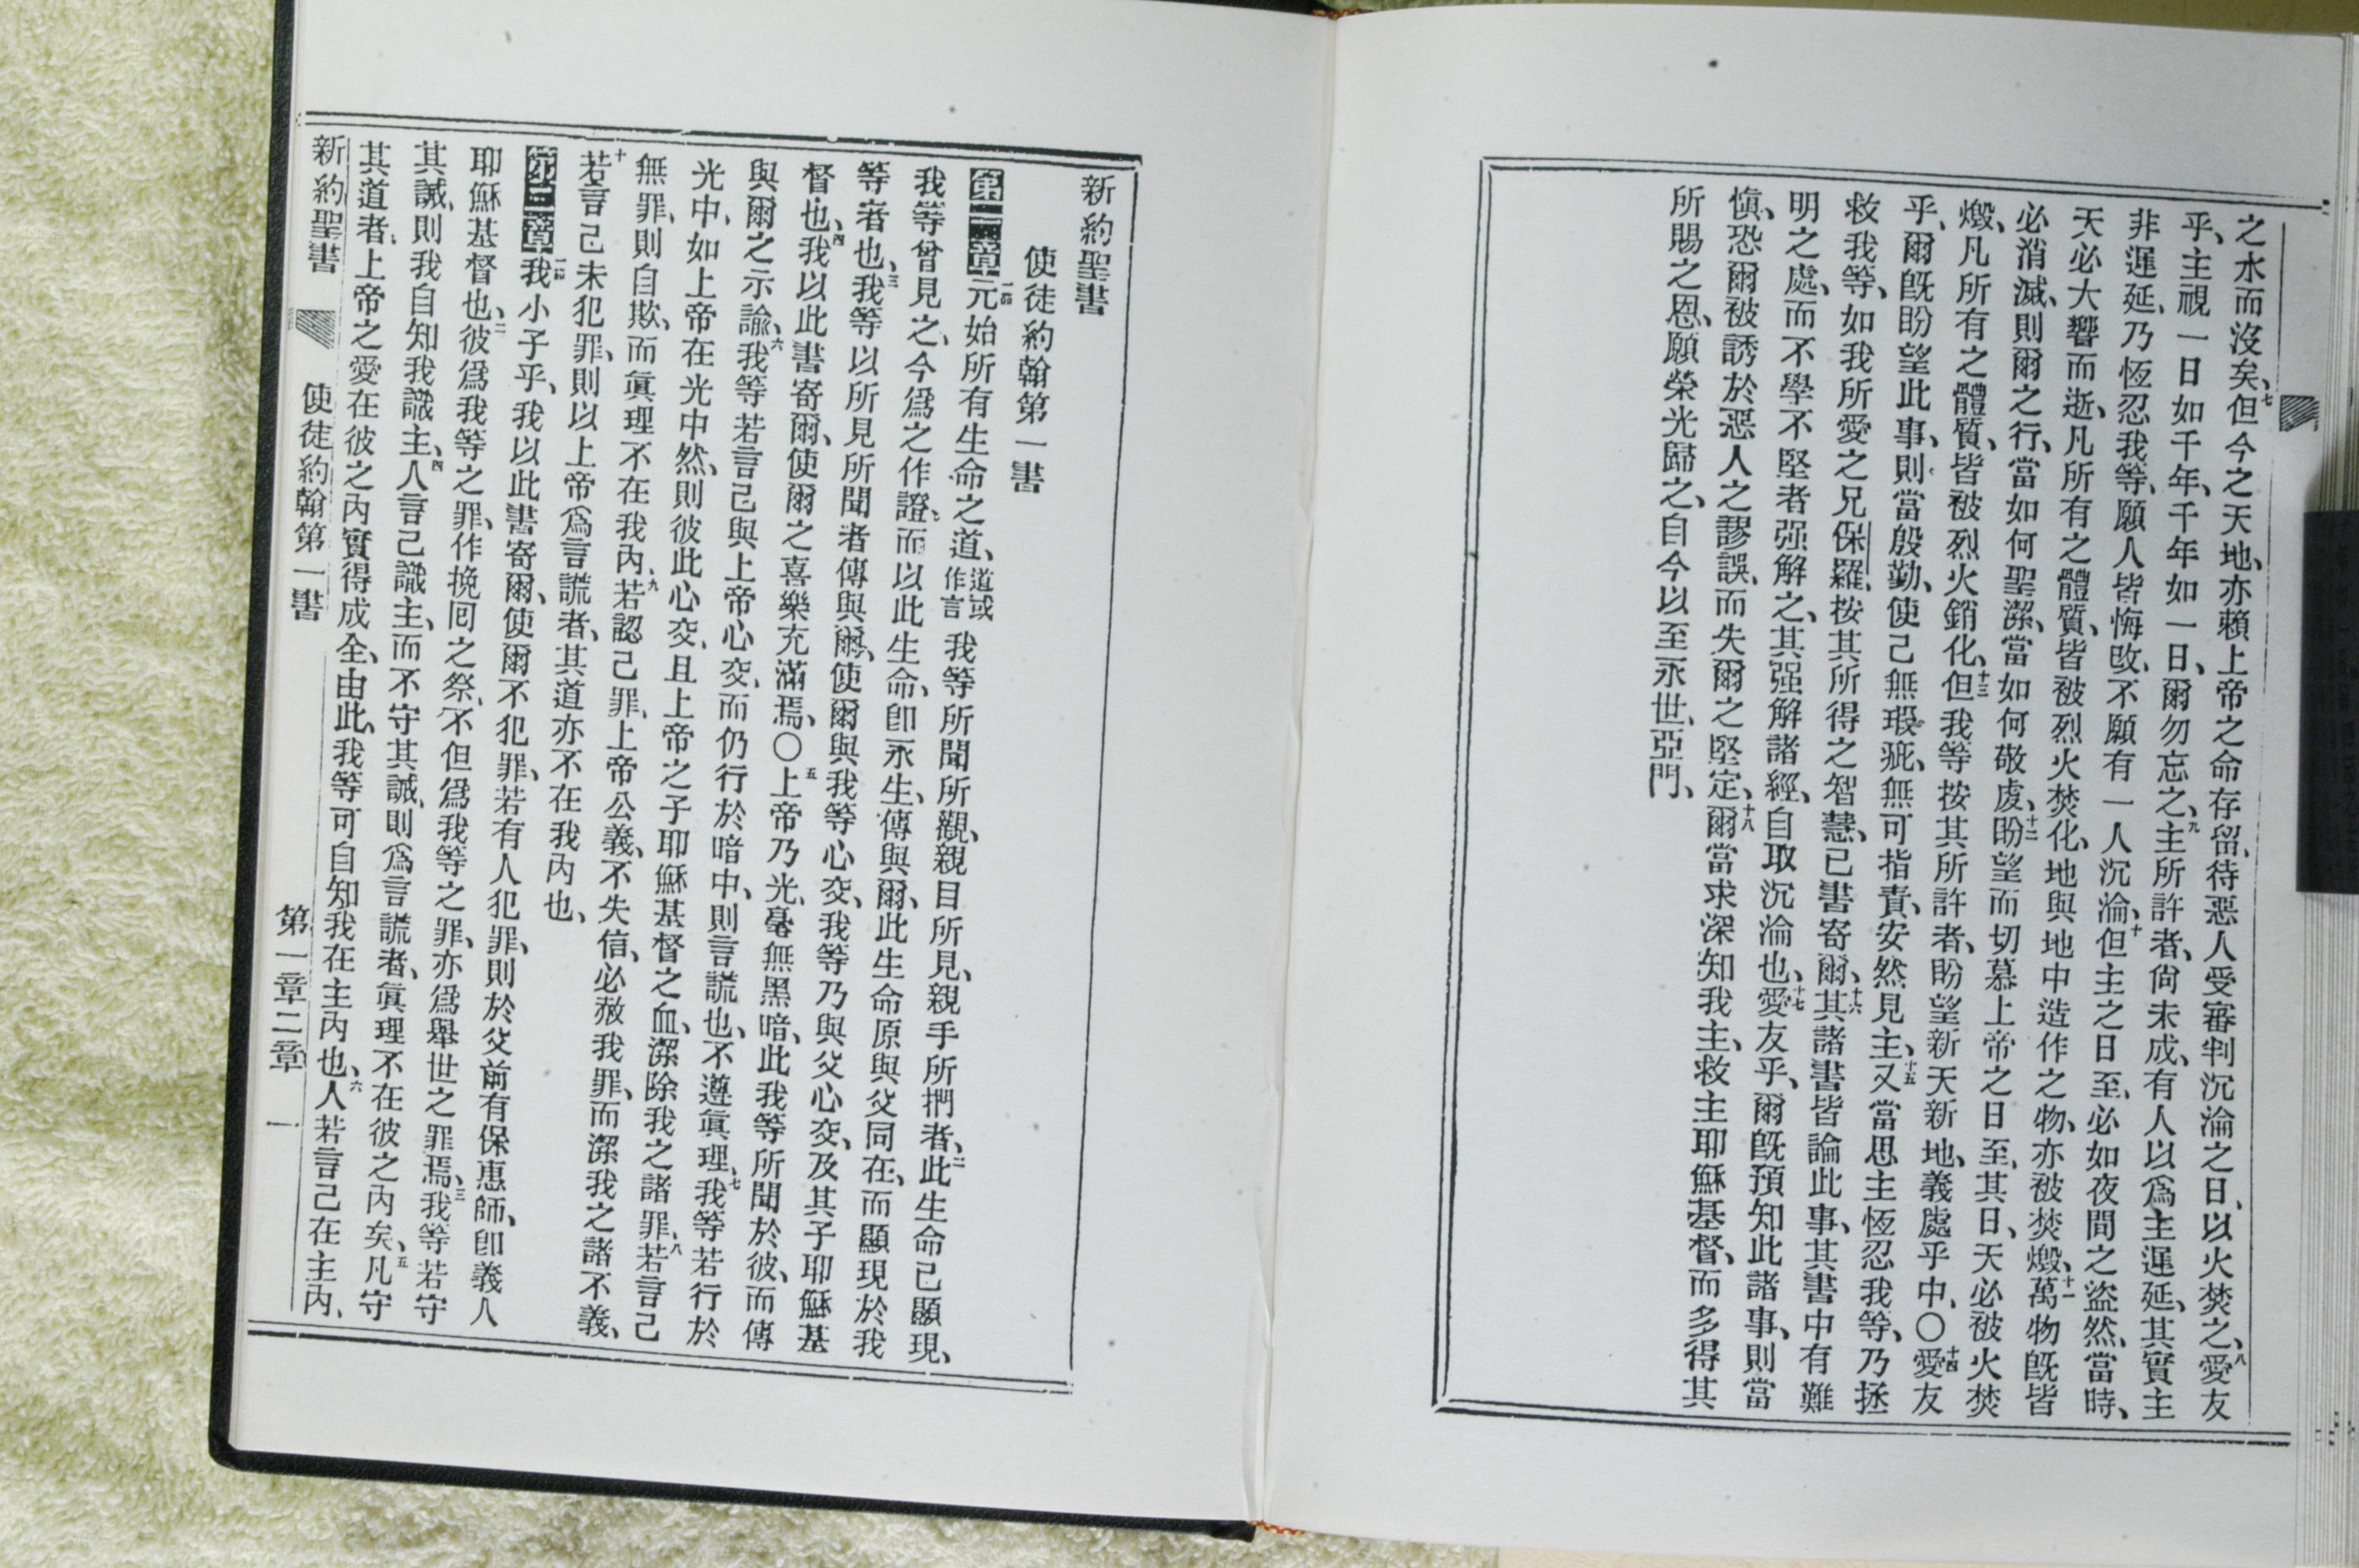 之水而沒矣、七但今之天地、亦賴上帝之命存留、待惡人受審判沉淪之日、以火焚之、八愛友
乎、主視一日如千年、千年如一日、爾勿忘之、九主所許者、尙未成、有人以爲主遲延、其實主
非遲延、乃恆忍我等、願人皆悔改、不願有一人沉淪、十但主之日至、必如夜間之盜然、當時、
天必大響而逝、凡所有之體質、皆被烈火焚化、地與地中造作之物、亦被焚燬、十一萬物旣皆
必消滅、則爾之行、當如何聖潔、當如何敬虔、十二盼望而切慕上帝之日至、其日、天必被火焚
燬、凡所有之體質、皆被烈火銷化、十三但我等按其所許者、盼望新天新地、義處乎中、〇十四愛友
乎、爾旣盼望此事、則當殷勤、使己無瑕疵、無可指責、安然見主、十五又當思主恆忍我等、乃拯
救我等、如我所愛之兄保羅、按其所得之智慧、已書寄爾、十六其諸書皆論此事、其書中有難
明之處、而不學不堅者强解之、其强解諸經、自取沉淪也、十七愛友乎、爾旣預知此諸事、則當
愼、恐爾被誘於惡人之謬誤、而失爾之堅定、十八爾當求深知我主、救主耶穌基督、而多得其
所賜之恩、願榮光歸之、自今以至永世、亞門、
新約聖書
使徒約翰第一書
第一章一節元始所有生命之道、道或作言我等所聞所觀、親目所見、親手所捫者、二此生命已顯現、
我等曾見之、今爲之作證、而以此生命、卽永生、傳與爾、此生命原與父同在、而顯現於我
等者也、三我等以所見所聞者傳與爾、使爾與我等心交、我等乃與父心交、及其子耶穌基
督也、四我以此書寄爾、使爾之喜樂充滿焉、〇五上帝乃光、毫無黑暗、此我等所聞於彼、而傳
與爾之示諭、六我等若言己與上帝心交、而仍行於暗中、則言謊也、不遵眞理、七我等若行於
光中、如上帝在光中然、則彼此心交、且上帝之子耶穌基督之血、潔除我之諸罪、八若言己
無罪、則自欺、而眞理不在我內、九若認己罪、上帝公義、不失信、必赦我罪、而潔我之諸不義、
十若言己未犯罪、則以上帝爲言謊者、其道亦不在我內也、
第二章一節我小子乎、我以此書寄爾、使爾不犯罪、若有人犯罪、則於父前有保惠師、卽義人
耶穌基督也、二彼爲我等之罪、作挽回之祭、不但爲我等之罪、亦爲舉世之罪焉、三我等若守
其誡、則我自知我識主、四人言己識主、而不守其誡、則爲言謊者、眞理不在彼之內矣、五凡守
其道者、上帝之愛在彼之內實得成全、由此、我等可自知我在主內也、六人若言己在主內、
新約聖書 使徒約翰第一書 第一章二章 一